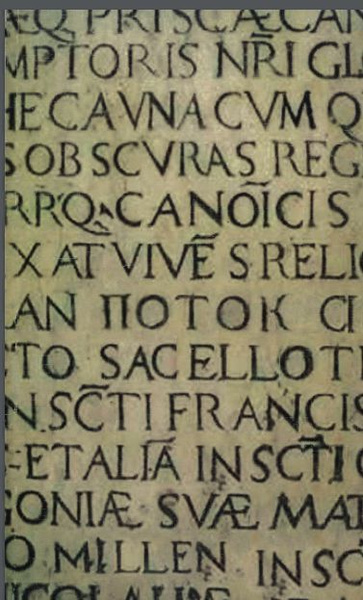 ÆQ PRISCÆ CAN
MPTORIS NR̃I GL
HECA VNA CVM Q
S OBSCVRAS REG
RPQ CANOĨCIS
X AT VIVẼ S RELI
AN ΠΟΤΟΚ CI
TO SACELLO TI
N SC̃TI FRANCIS
ET ALIÃ IN SCT̃I
GONIÆ SVÆ MAT
O MILLEN IN SC